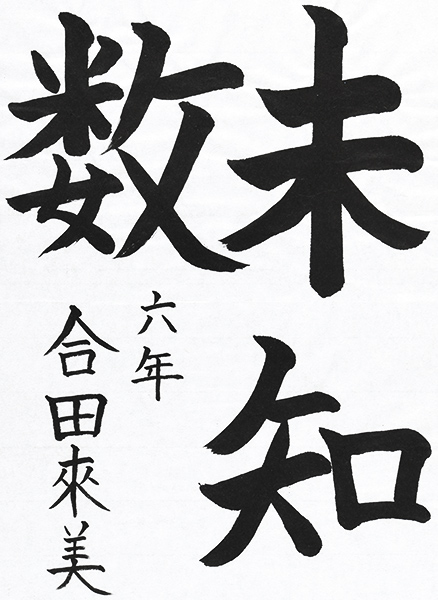 未知
数
六年
合田來美